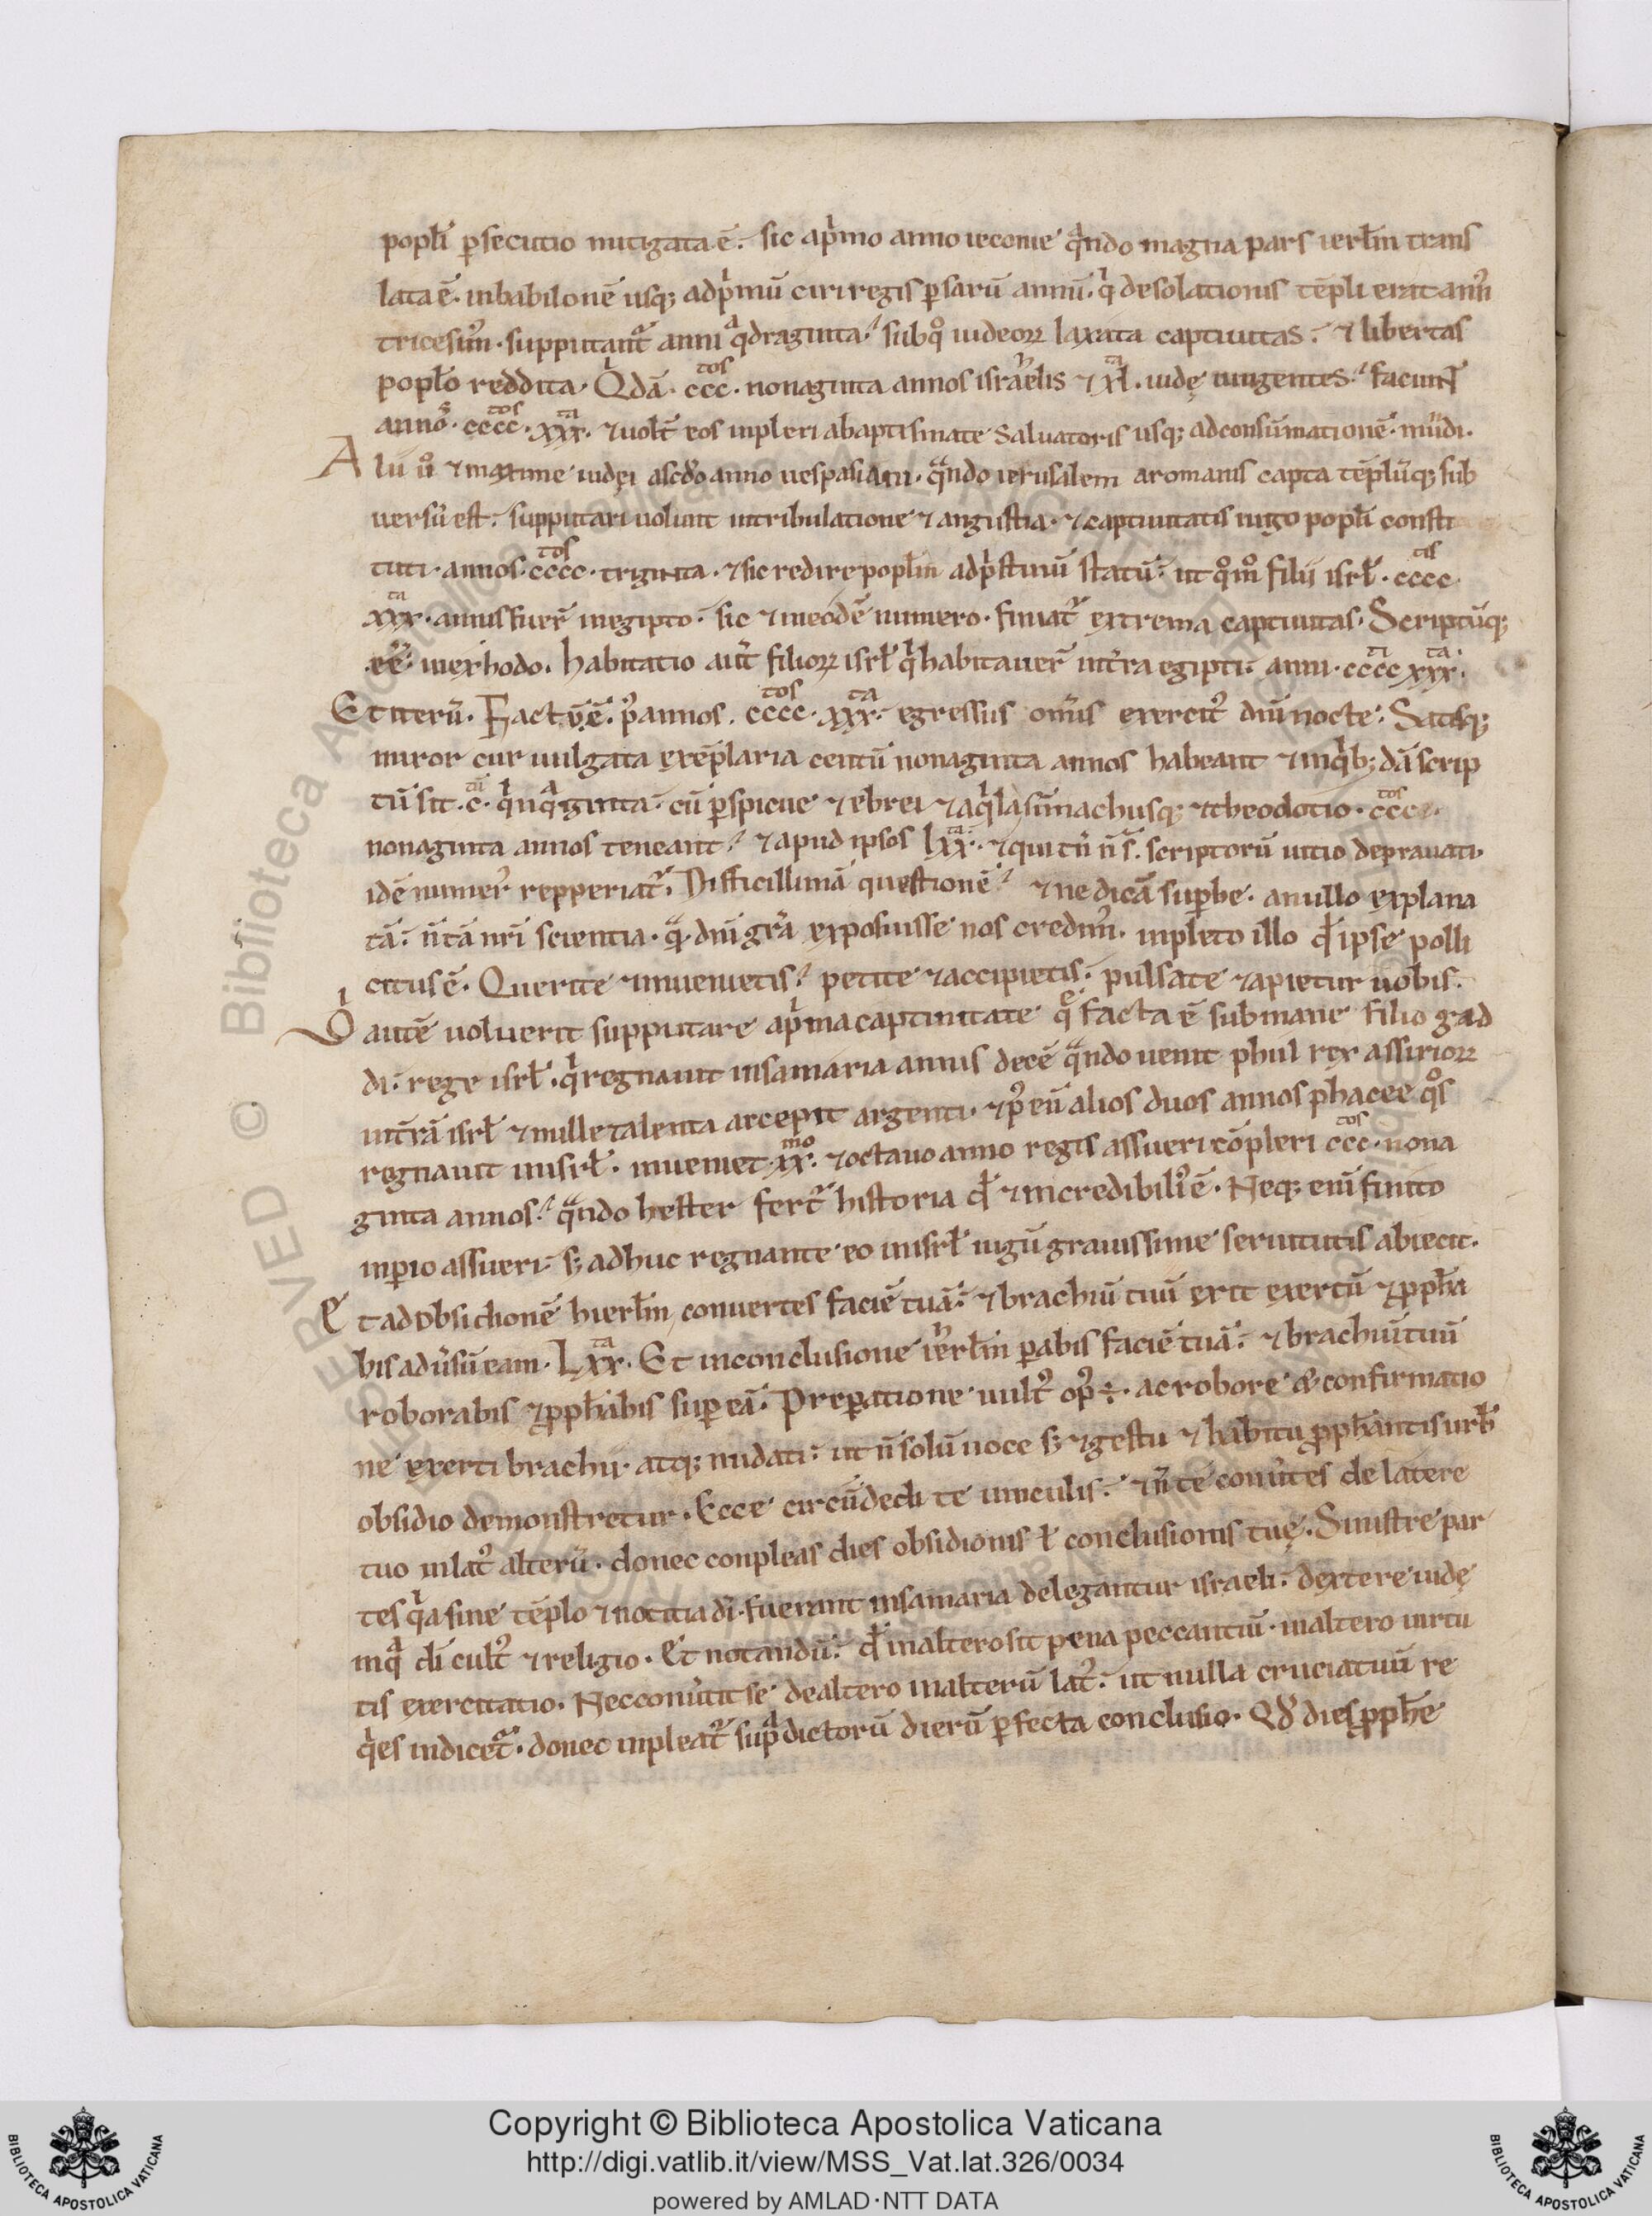 popłi ꝑsecutio mitigata ē. sic ap̍mo anno ieconie qͣndo magna pars ierłm trans
lata ē. inbabilonē usqꝫ adp̍mū ciri regis ꝑsarū annū. q̍ desolationis tēpli erat annꝰ
tricesimꝰ. supputant᷑ anni qͣdraginta. subqͦ iudeoꝝ laxata captiuitas. ⁊ libertas
popło reddita. Q̍dā. cccᵗᵒˢ. nonaginta annos israhelis ⁊ xlᵗᵃ. iudę iungentes. faciunt
annos. ccccᵗᵒˢ. xxxᵗᵃ. ⁊ uolt̄ eos inpleri abaptismate Saluatoris usqꝫ adconsūmationē. mūdi.
Alii uͦ ⁊ maxime iudęi ascdͦo anno uespasiani. qͣndo ierusalem aromanis capta tēplūqꝫ sub
uersū est. supputari uolunt intribulatione ⁊ angustia. ⁊ captiuitatis iugo popłi consti
tuti. annos. ccccᵗᵒˢ. triginta. ⁊ sic redire popłm adp̍stinū statū. ut qͦmͦ filii isrł. ccccᵗⁱˢ
xxxᵗᵃ. annis fuer̄ inegipto. sic ⁊ ineodē numero. finiat᷑ extrema captiuitas. Scriptūqꝫ
eē. inexhodo. habitatio aut̄ filioꝝ isrł q̍ habitauer̄ int̄ra egipti. anni. ccccᵗⁱ xxxᵗᵃ.
Et iterū. Factū ē. pꝰ annos. ccccᵗᵒˢ. xxxᵗᵃ. egressus omīs exercitꝰ dnī nocte. Satisqꝫ
miror cur uulgata exēplaria centū nonaginta annos habeant ⁊ inq̍bꝫdā scrip
tū sit. c. q̍nqͣginta. cū ꝑspicue ⁊ ebrei ⁊ aq̍la sīmachusqꝫ ⁊ theodotio. cccᵗᵒˢ.
nonaginta annos teneant. ⁊ apud ipsos lxxᵗᵃ. ⁊ qui tn̄ n̄ s. scriptorū uitio deprauati.
idē numerꝰ repperiat᷑. Difficillimā questionē. ⁊ ne dicā suꝑbe. anullo explana
tā. n̄ tā nrī scientia. qͣ dnī grā exposuisse nos credimꝰ. inpleto illo qđ ipse polli
citus ē. Querite ⁊ inuenietis. petite ⁊ accipietis. pulsate ⁊ apietur uobis.
Si autē uoluerit supputare ap̍ma captiuitate qͤ facta ē submane filio gad
di. rege isrł. q̍ regnauit insamaria annis decē qͣndo uenit phul rex assirioꝝ
int̄rā isrł ⁊ mille talenta accepit argenti. ⁊ pꝰ eū alios duos annos phacee qͦs
regnauit inisrł. inueniet. xxᵐᵒ. ⁊ octauo anno regis assueri cōpleri cccᵗᵒˢ. nona
ginta annos. qͣndo hester fert᷑ historia qđ ⁊ incrediibilꝰ ē. Neqꝫ enī finito
inꝑio assueri. sꝫ adhuc regnante eo inisrł iugū grauissime seruitutis abiecit.
Et ad obsidionē hierłm, conuertes faciē tuā. ⁊ brachiū tuū erit exertū ⁊ ꝓpħa
bis adūsū eam. Lxxᵗᵃ. Et inconclusione ierłm ꝑabis faciē tuā. ⁊ brachiū tuū
roborabis ⁊ ꝓpħabis suꝑ eā. Preꝑatione uultꝰ opꝰ ÷. ac robore & confirmatio
ne exerti brachii. atqꝫ nudati. ut n̄ solū uoce sꝫ ⁊ gestu ⁊ habitu ꝓpħantis urbˀ
obsidio demonstretur. Ecce circūdedi te uinculis. ⁊ n̄ te conūtes de latere
tuo inlatꝰ alterū. donec conpleas dies obsidionis ł conclusionis tuę. Sinistre par
tes q̍a sine tēplo ⁊ notitia dī. fuerunt insamaria delegantur israeli. dextere iudę
inqͣ di cultꝰ ⁊ religio. Et notandū. qđ inaltero sit pena peccantiū. inaltero uirtu
tis exercitatio. Nec conūtit se dealtero inalterū latꝰ. ut nulla cruciatuū re
q̍es indicet᷑. donec inpleat᷑ supͣdictorū dierū ꝑfecta conclusio. Qđ dies ꝓpħe
Copyright © Biblioteca Apostolica Vaticana
http://digi.vatlib.it/view/MSS_Vat.lat.326/0034
powered by AMLAD·NTT DATA
BIBLIOTECA APOSTOLICA VATICANA
BIBLIOTECA APOSTOLICA VATICANA